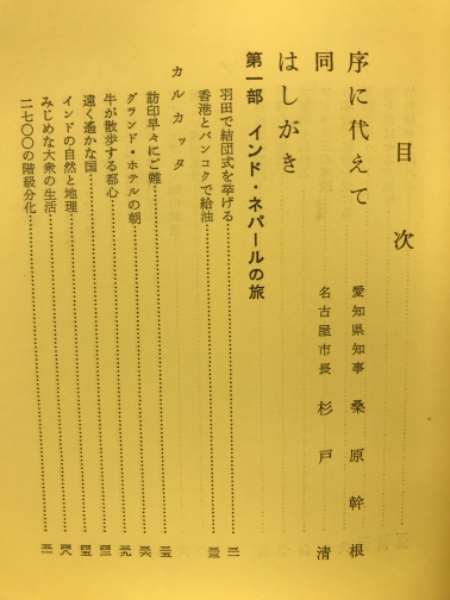 目次
序に代えて 愛知県知事 桑原幹根
同 名古屋市長 杉戸清
はしがき
第一部 インド・ネパールの旅
羽田で結団式を挙げる
香港とバンコクで給油
カルカッタ
訪印早々にご難
グランド・ホテルの朝
牛が散歩する都心
遠く遙かな国
インドの自然と地理
みじめな大衆の生活
二七〇〇の階級分化